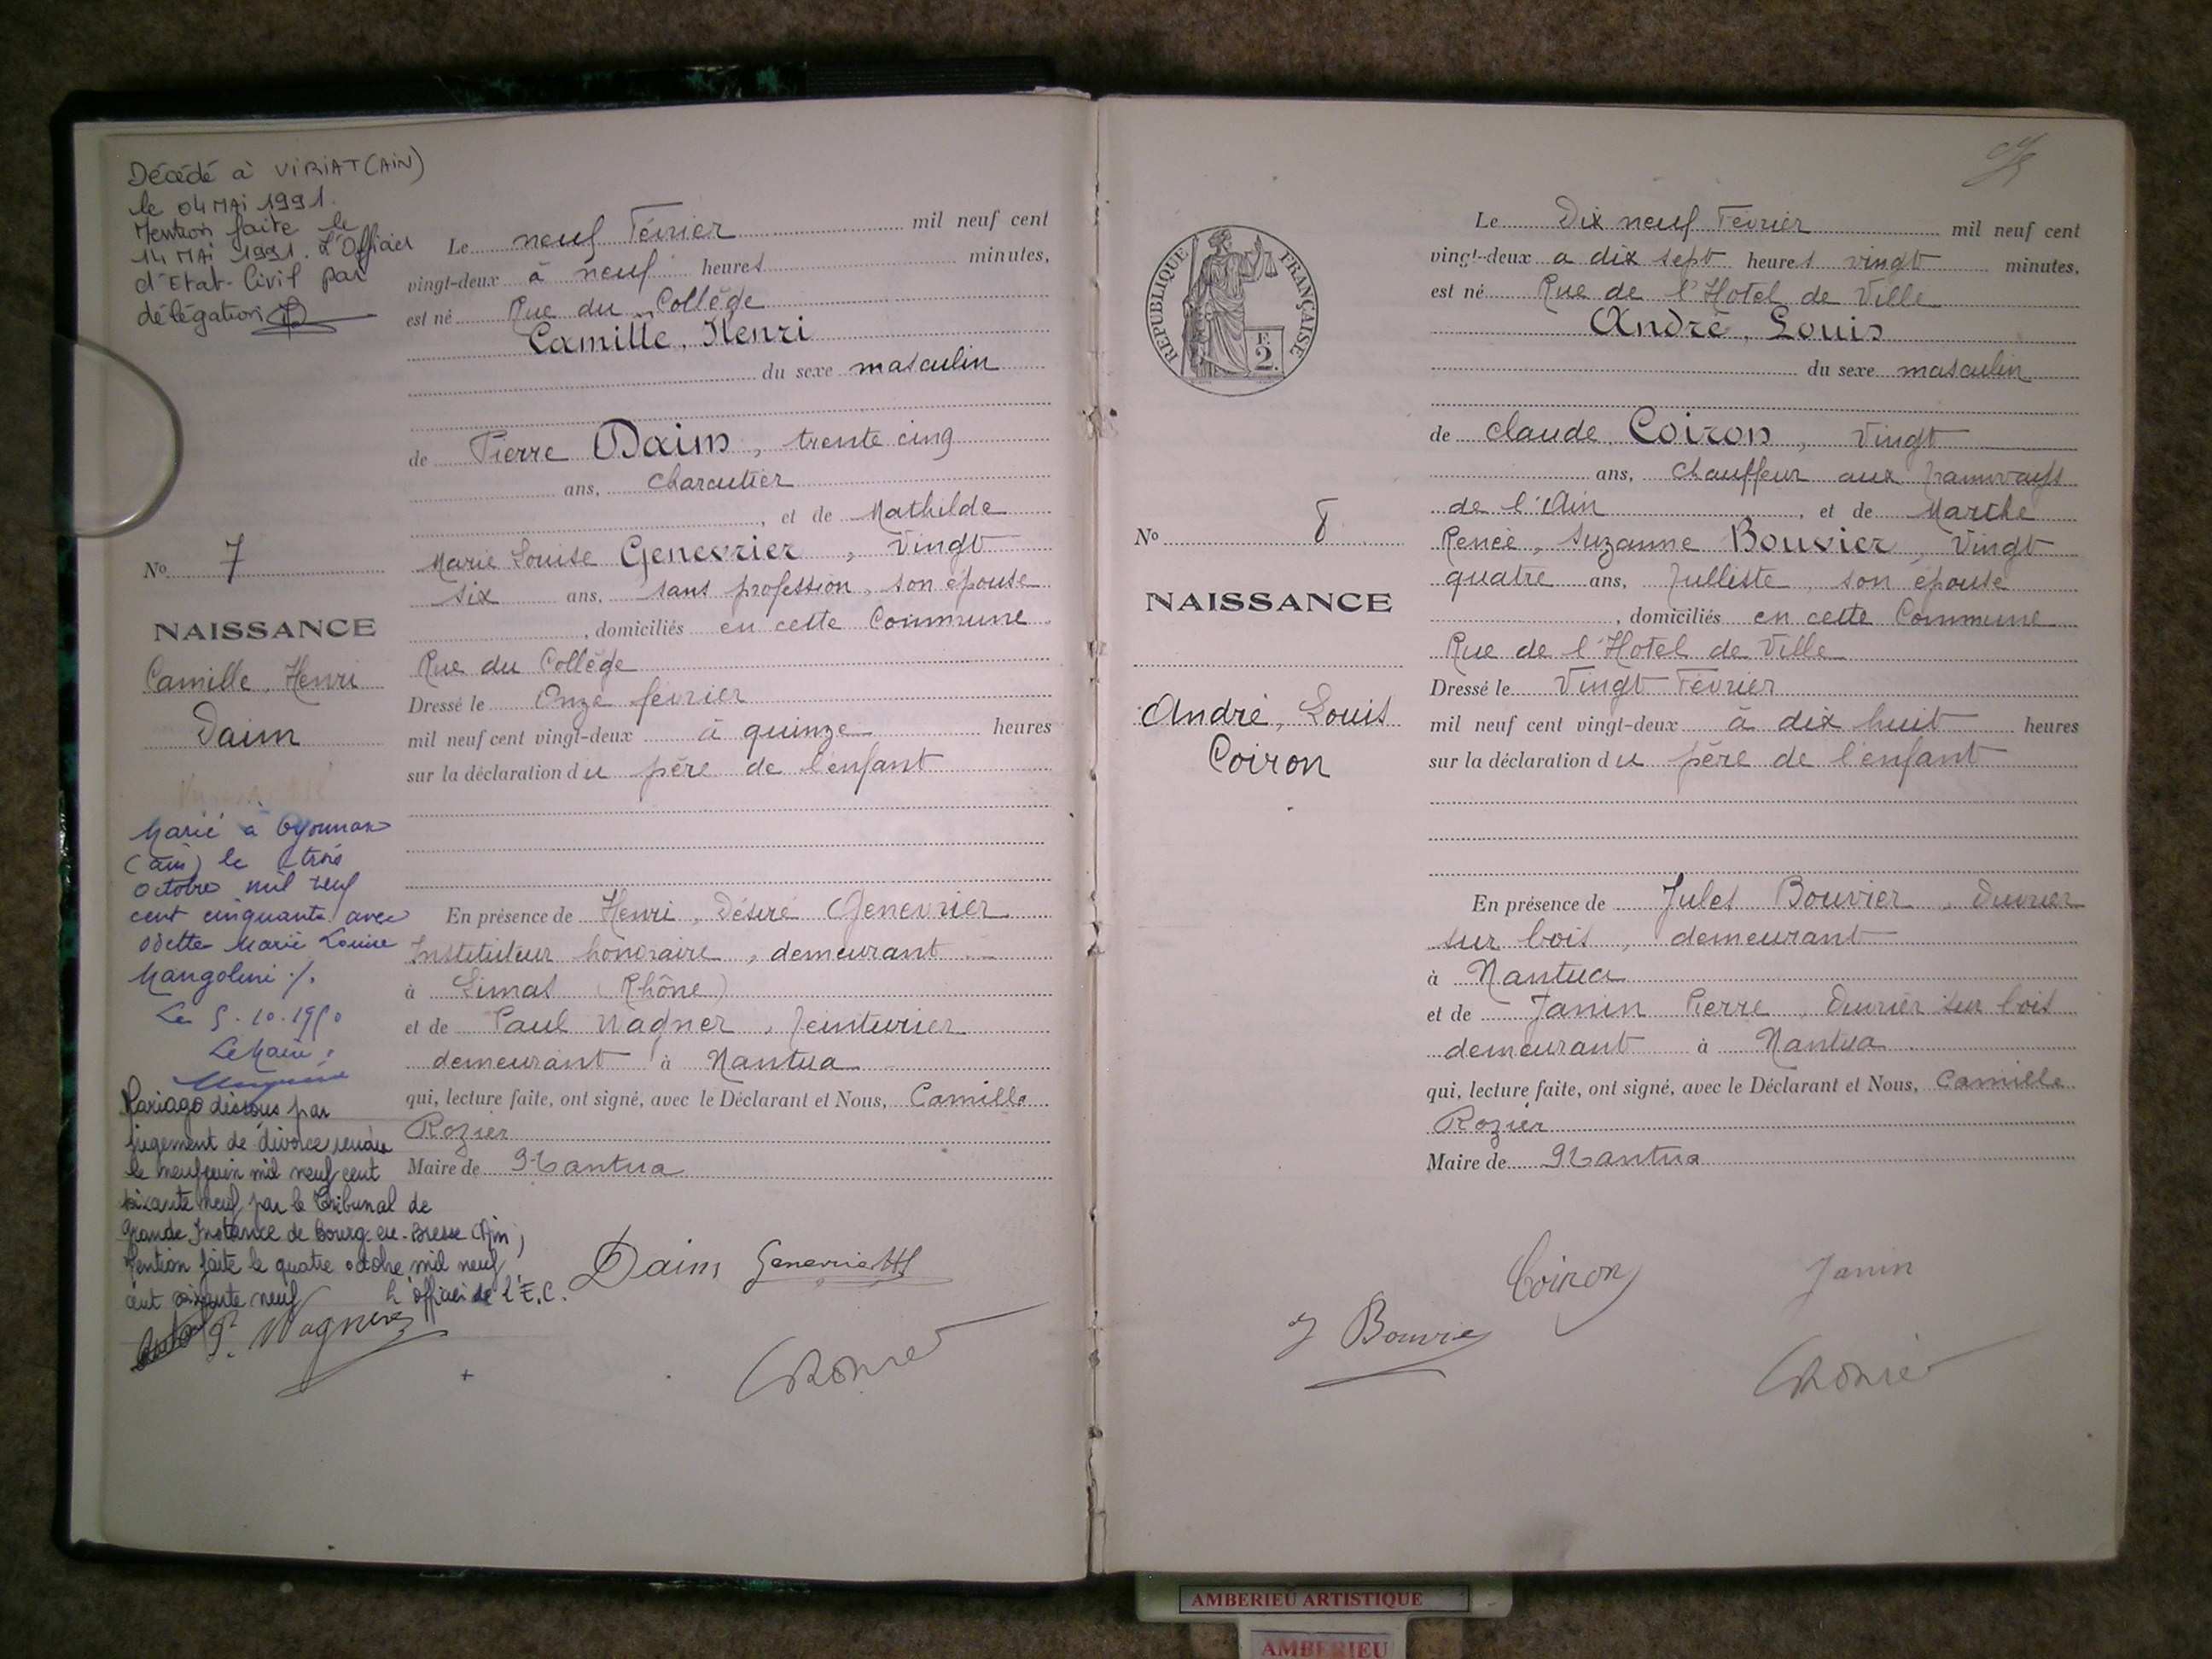 Décédé à VIRIAT (AIN)
le 04 MAI 1991.
Mention faite le
14 MAI 1991. L'Officier
d'Etat-Civil par
délégation
Le neuf Février mil neuf cent
vingt-deux à neuf heures minutes,
est né Rue du Collège
Camille, Henri
du sexe masculin
de Pierre Daim, trente cinq
ans, charcutier
, et de Mathilde
Marie Louise Genevrier, vingt
six ans, sans profession, son épouse
, domiciliés en cette Commune
Rue du Collège
Dressé le Onze février
mil neuf cent vingt-deux à quinze heures
sur la déclaration du père de l'enfant
En présence de Henri, Désiré Genevrier
Instituteur honoraire, demeurant
à Limas (Rhône)
et de Paul Wagner, Teinturier
demeurant à Nantua
qui, lecture faite, ont signé, avec le Déclarant et Nous, Camille
Rozier
Maire de Nantua
No 7
NAISSANCE
Camille, Henri
Daim
Marié à Oyonnax
(ain) le trois
octobre mil neuf
cent cinquante avec
Odette Marie Louise
Mangolini ./.
Le 5.10.1950
Le Maire :
Mariage dissous par
jugement de divorce rendu
le neuf juin mil neuf cent
soixante neuf par le Tribunal de
Grande Instance de Bourg-en-Bresse (Ain)
Mention faite le quatre octobre mil neuf
cent soixante neuf L'officier de l'E.C.
P. Wagner
Daim Genevrier
Rozier
REPUBLIQUE FRANÇAISE
F.
2.
No 8
NAISSANCE
André, Louis
Coiron
Le Dix neuf Février mil neuf cent
vingt-deux a dix sept heures vingt minutes,
est né Rue de l'Hotel de Ville
André, Louis
du sexe masculin
de Claude Coiron, Vingt
ans, Chauffeur aux Tramways
de l'Ain, et de Marthe
Renée, Suzanne Bouvier, Vingt
quatre ans, Tulliste, son épouse
, domiciliés en cette Commune
Rue de l'Hotel de Ville
Dressé le Vingt Février
mil neuf cent vingt-deux à dix huit heures
sur la déclaration du père de l'enfant
En présence de Jules Bouvier, Ouvrier
sur bois, demeurant
à Nantua
et de Janin Pierre, Ouvrier sur bois
demeurant à Nantua
qui, lecture faite, ont signé, avec le Déclarant et Nous, Camille
Rozier
Maire de Nantua
Coiron Janin
J Bouvier
Rozier
AMBERIEU ARTISTIQUE
AMBERIEU